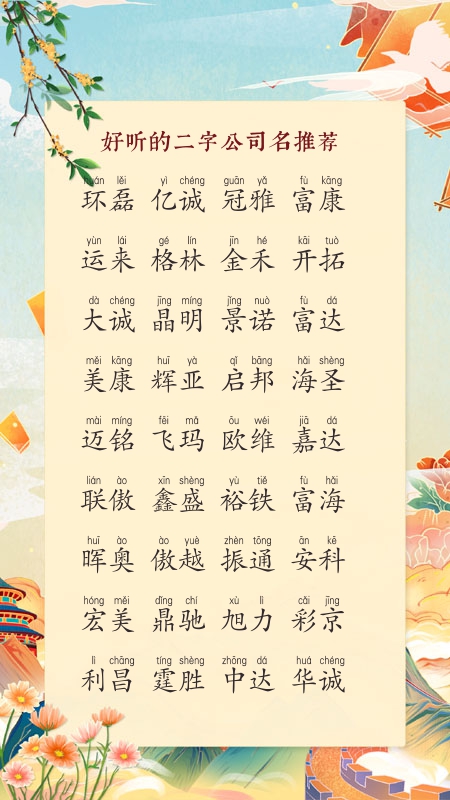 好听的二字公司名推荐
huán lěi yì chéng guān yǎ fù kāng
环磊 亿诚 冠雅 富康
yùn lái gé lín jīn hé kāi tuò
运来 格林 金禾 开拓
dà chéng jīng míng jǐng nuò fù dá
大诚 晶明 景诺 富达
měi kāng huī yà qǐ bāng hǎi shèng
美康 辉亚 启邦 海圣
mài míng fēi mǎ ōu wéi jiā dá
迈铭 飞玛 欧维 嘉达
lián ào xīn shèng yù tiě fù hǎi
联傲 鑫盛 裕铁 富海
huī ào ào yuè zhèn tōng ān kē
晖奥 傲越 振通 安科
hóng měi dǐng chí xù lì cǎi jīng
宏美 鼎驰 旭力 彩京
lì chāng tíng shèng zhōng dá huá chéng
利昌 霆胜 中达 华诚